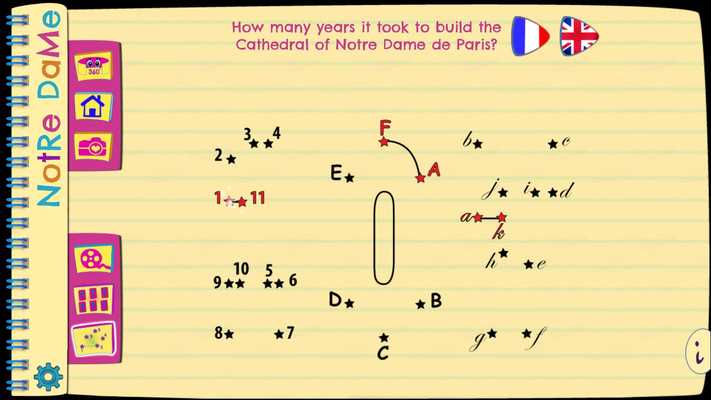 How many years it took to build the
Cathedral of Notre Dame de Paris?
NotRe DaMe
360°
3 4
2
1 11
10 5
9 6
8 7
F
E A
D B
C
b c
j i d
a
k
h e
g f
i